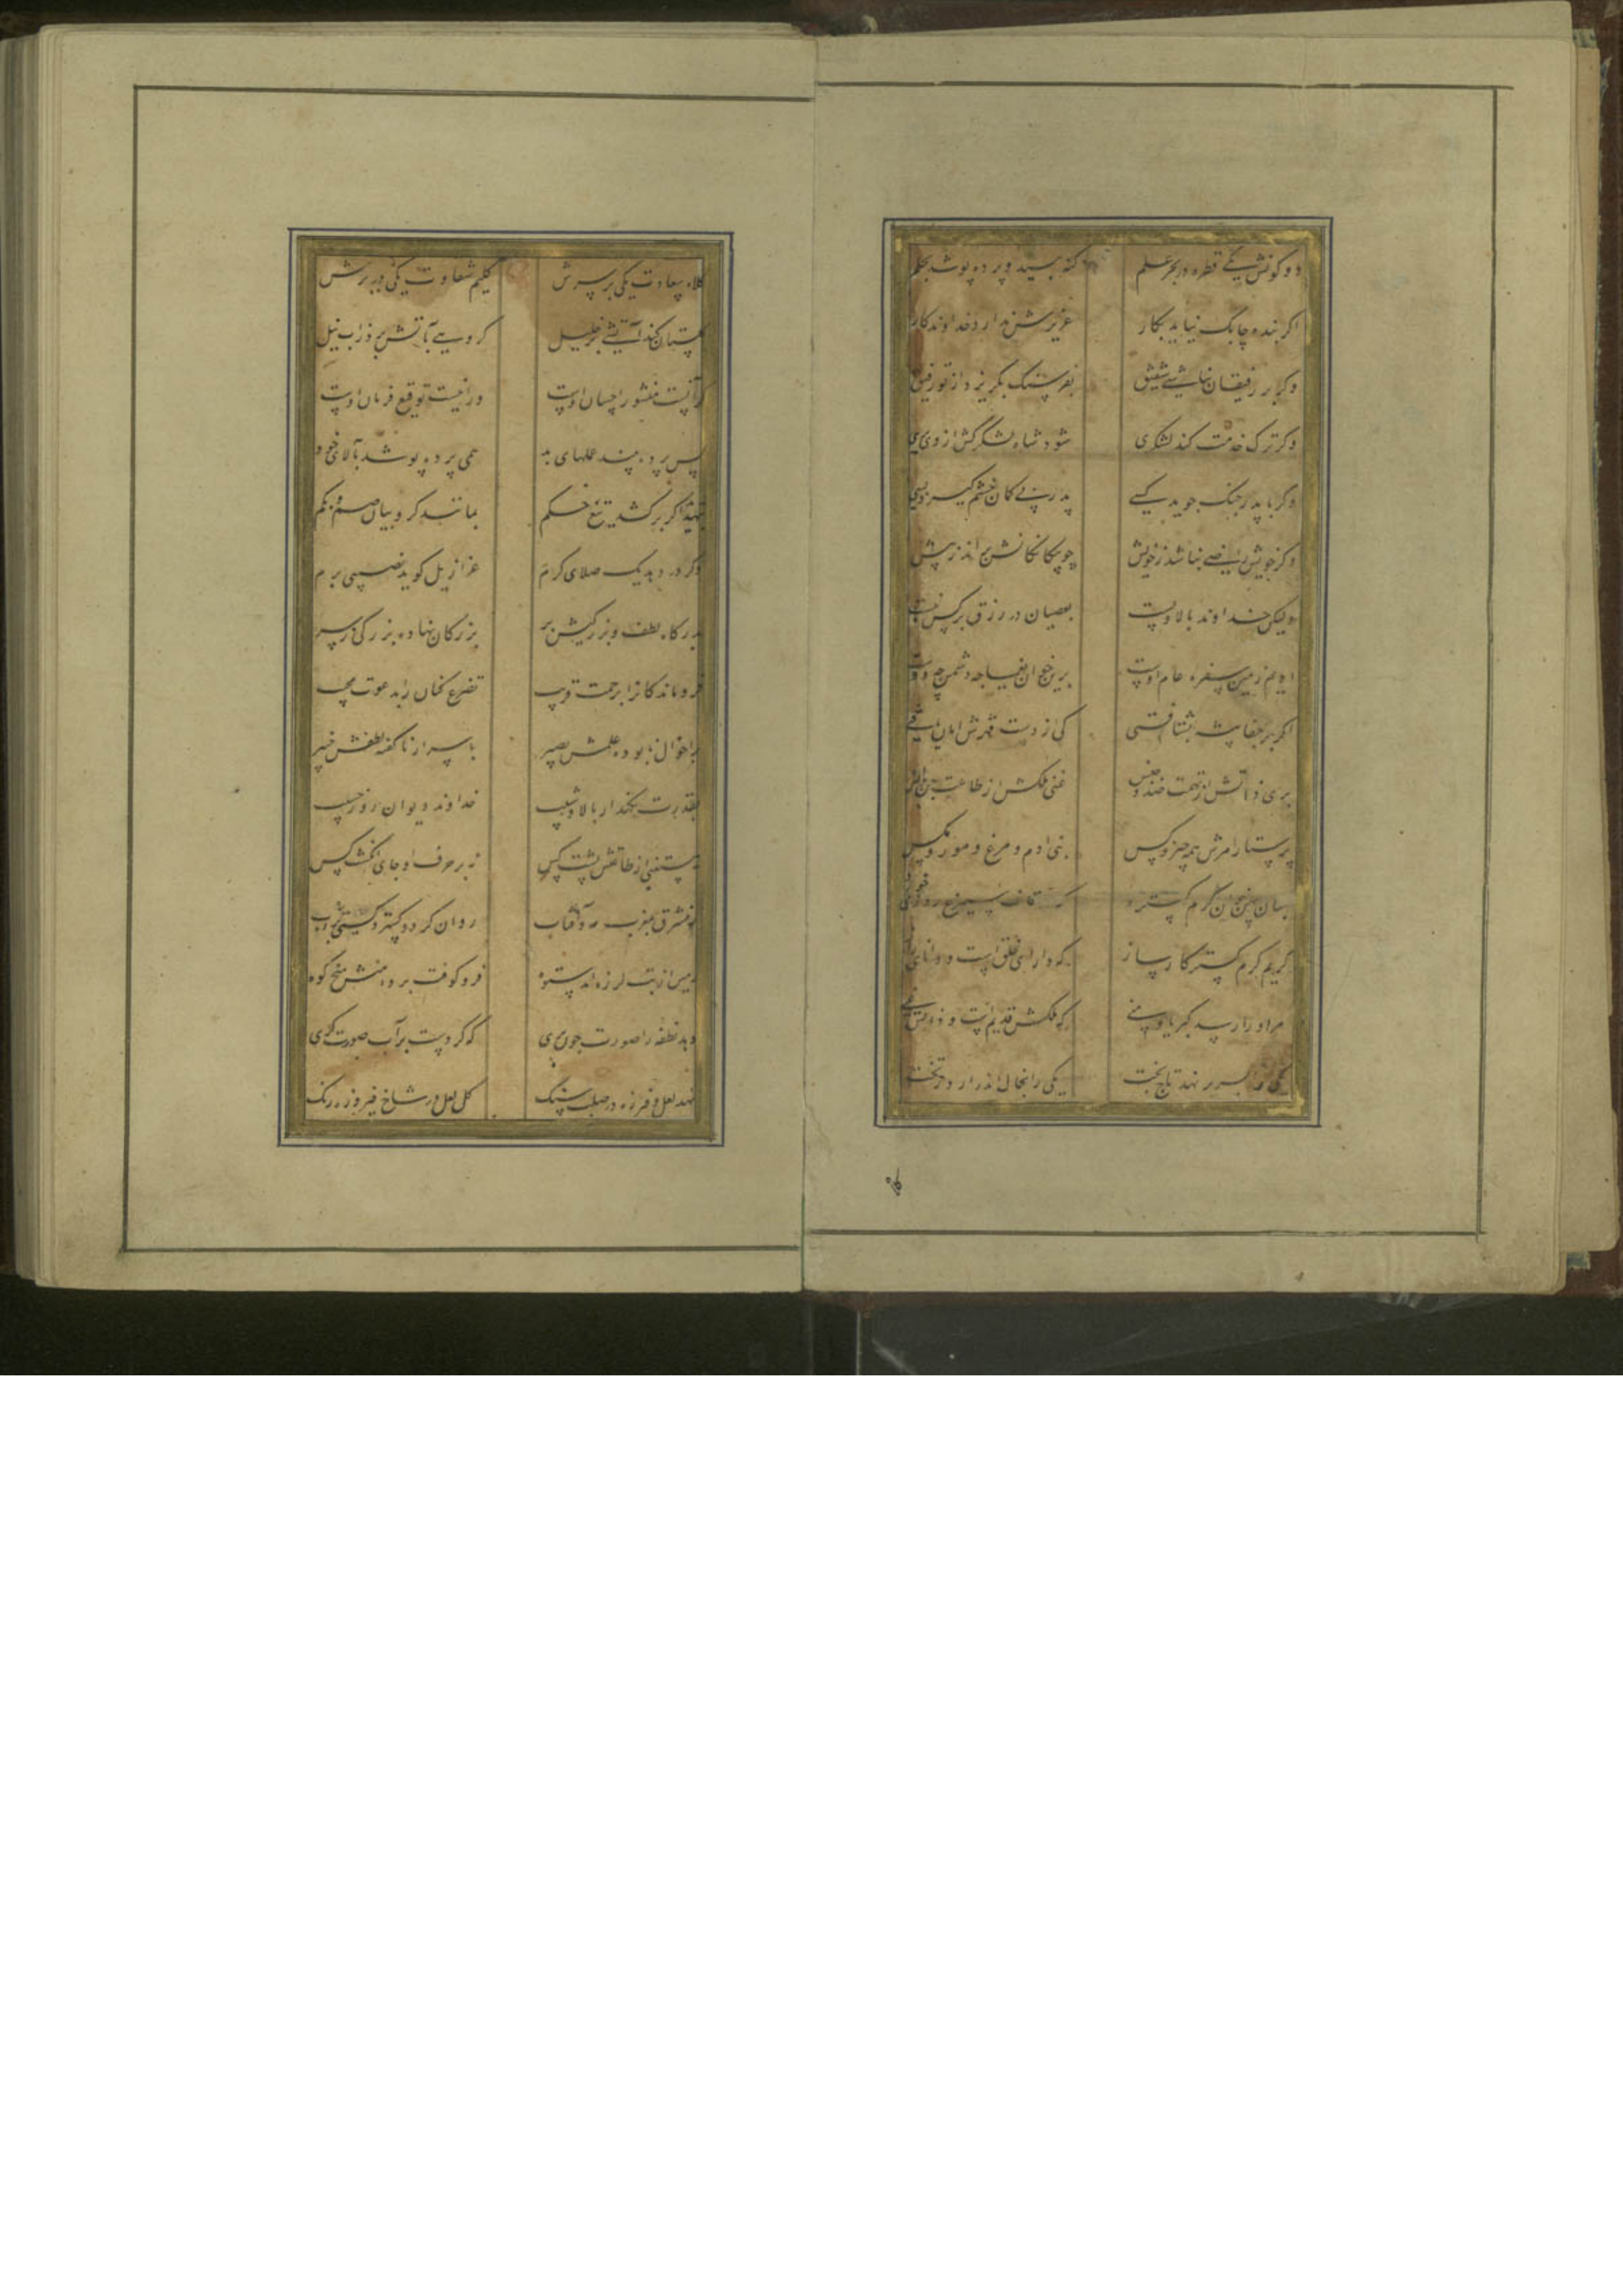 دو کونش یکی قطره در بحر علم کنه بیند و پرده پوشد بحلم
اکر بنده چابک نیاید بکار عزیزش ندارد خداوندکار
وکر بر رفیقان نباشی شفیق بفرسنک بکریزد از تو رفیق
وکر ترک خدمت کند لشکری شود شاه لشکرکش از وی بری
وکر با پدر جنک جوید کسی پدر بی کمان خشم کیرد بسی
وکر خویش راضی نباشد ز خویش چو بیکانکانش براند ز پیش
ولیکن خداوند بالا و پست بعصیان در رزق بر کس نبست
ادیم زمین سفره عام اوست برین خوان یغما چه دشمن چه دوست
اکر بر جفا پیشه بشتافتی کی از دست قهرش امان یافتی
بری ذاتش از تهمت ضد و جنس غنی ملکش از طاعت جن و انس
پرستار امرش همه چیز و کس بنی ادم و مرغ و مور و مکس
چنان پهن خوان کرم کسترد که سیمرغ در قاف روزی خورد
کریم کرم کستر کارساز که دارای خلق است و دانای راز
مر او را رسد کبریا و منی که ملکش قدیم است و ذاتش غنی
یکی را بسر بر نهد تاج بخت یکی را بخاک اندر ارد ز تخت
کلاه سعادت یکی بر سرش کلیم شقاوت یکی در برش
کلستان کند آتشی بر خلیل کروهی بآتش برد ز آب نیل
کر آنست منشور احسان اوست ور اینست توقیع فرمان اوست
پس پرده بیند عملهای بد همی پرده پوشد بآلای خود
بتهدید اکر برکشد تیغ حکم بمانند کروبیان صم و بکم
وکر در دهد یک صلای کرم عزازیل کوید نصیبی برم
بدرکاه لطف و بزرکیش بر بزرکان نهاده بزرکی ز سر
فروماندکانرا برحمت قریب تضرع کنان را بدعوت مجیب
بر احوال نابوده علمش بصیر باسرار ناکفته لطفش خبیر
بقدرت نکهدار بالا و شیب خداوند دیوان روز حسیب
نه مستغنی از طاعتش پشت کس نه بر حرف او جای انکشت کس
ز مشرق بمغرب مه و آفتاب روان کرد و کسترد کیتی بر آب
زمین از تب لرزه آمد ستوه فرو کوفت بر دامنش میخ کوه
دهد نطفه را صورت چون پری که کردست بر آب صورت کری
نهد لعل و فیروزه در صلب سنک کل لعل در شاخ فیروزه رنک